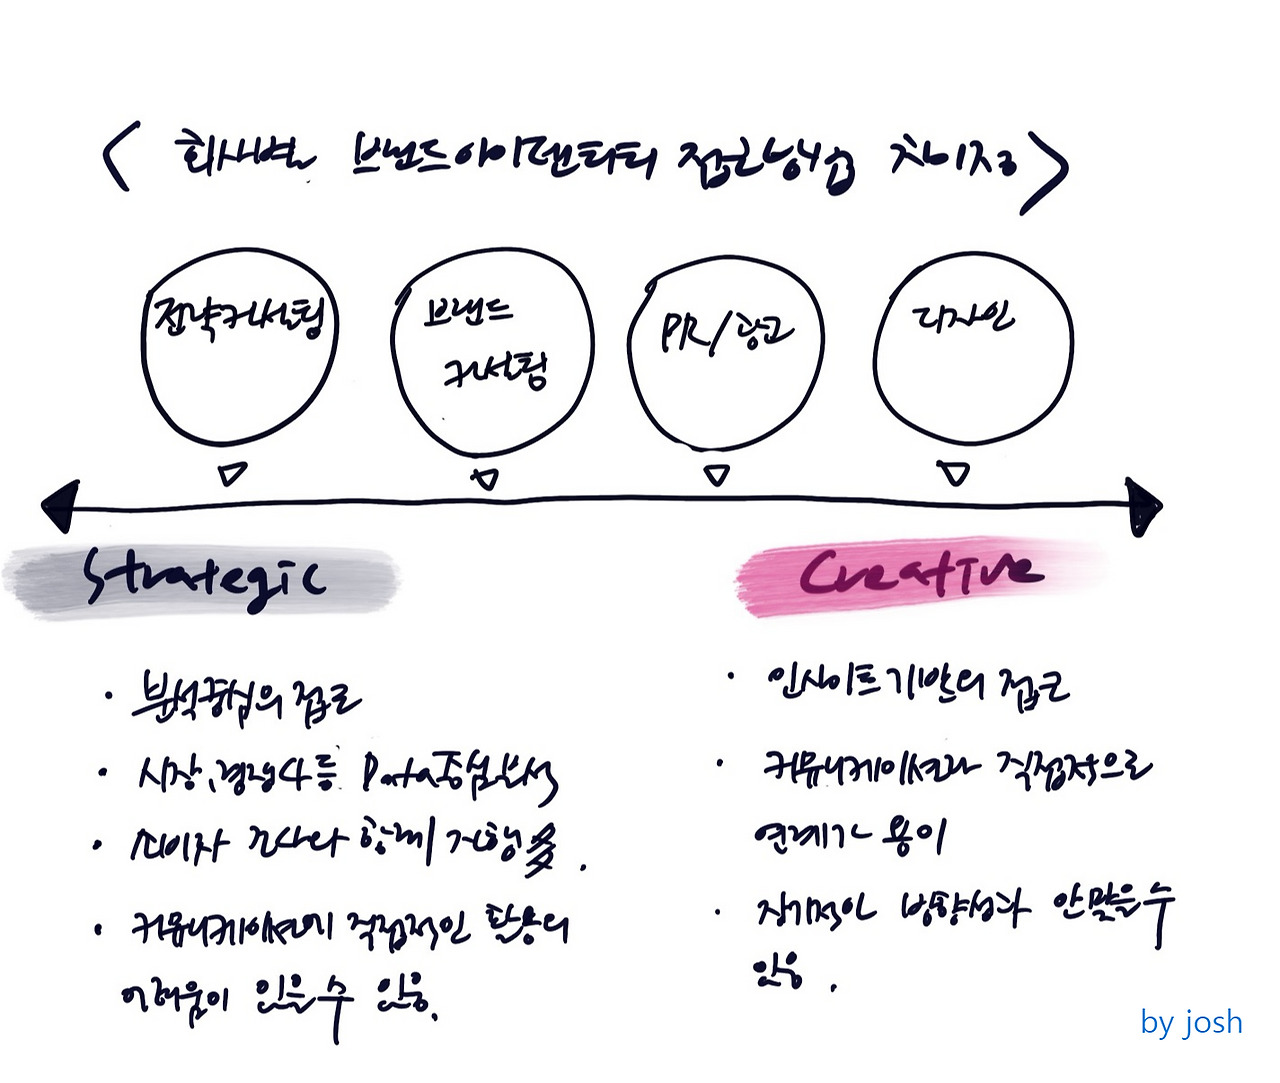 < 회사별 브랜드아이덴티티 접근방법 차이점 >
전략컨설팅
브랜드
컨설팅
PR/광고
디자인
Strategic
Creative
· 분석중심의 접근
· 시장, 경쟁사 등 Data중심분석
· 소비자 조사와 함께 거행多.
· 커뮤니케이션에 직접적인 활용의
어려움이 있을 수 있음.
· 인사이트 기반의 접근
· 커뮤니케이션과 직접적으로
연계가 용이
· 장기적인 방향성과 안맞을 수
있음.
by josh